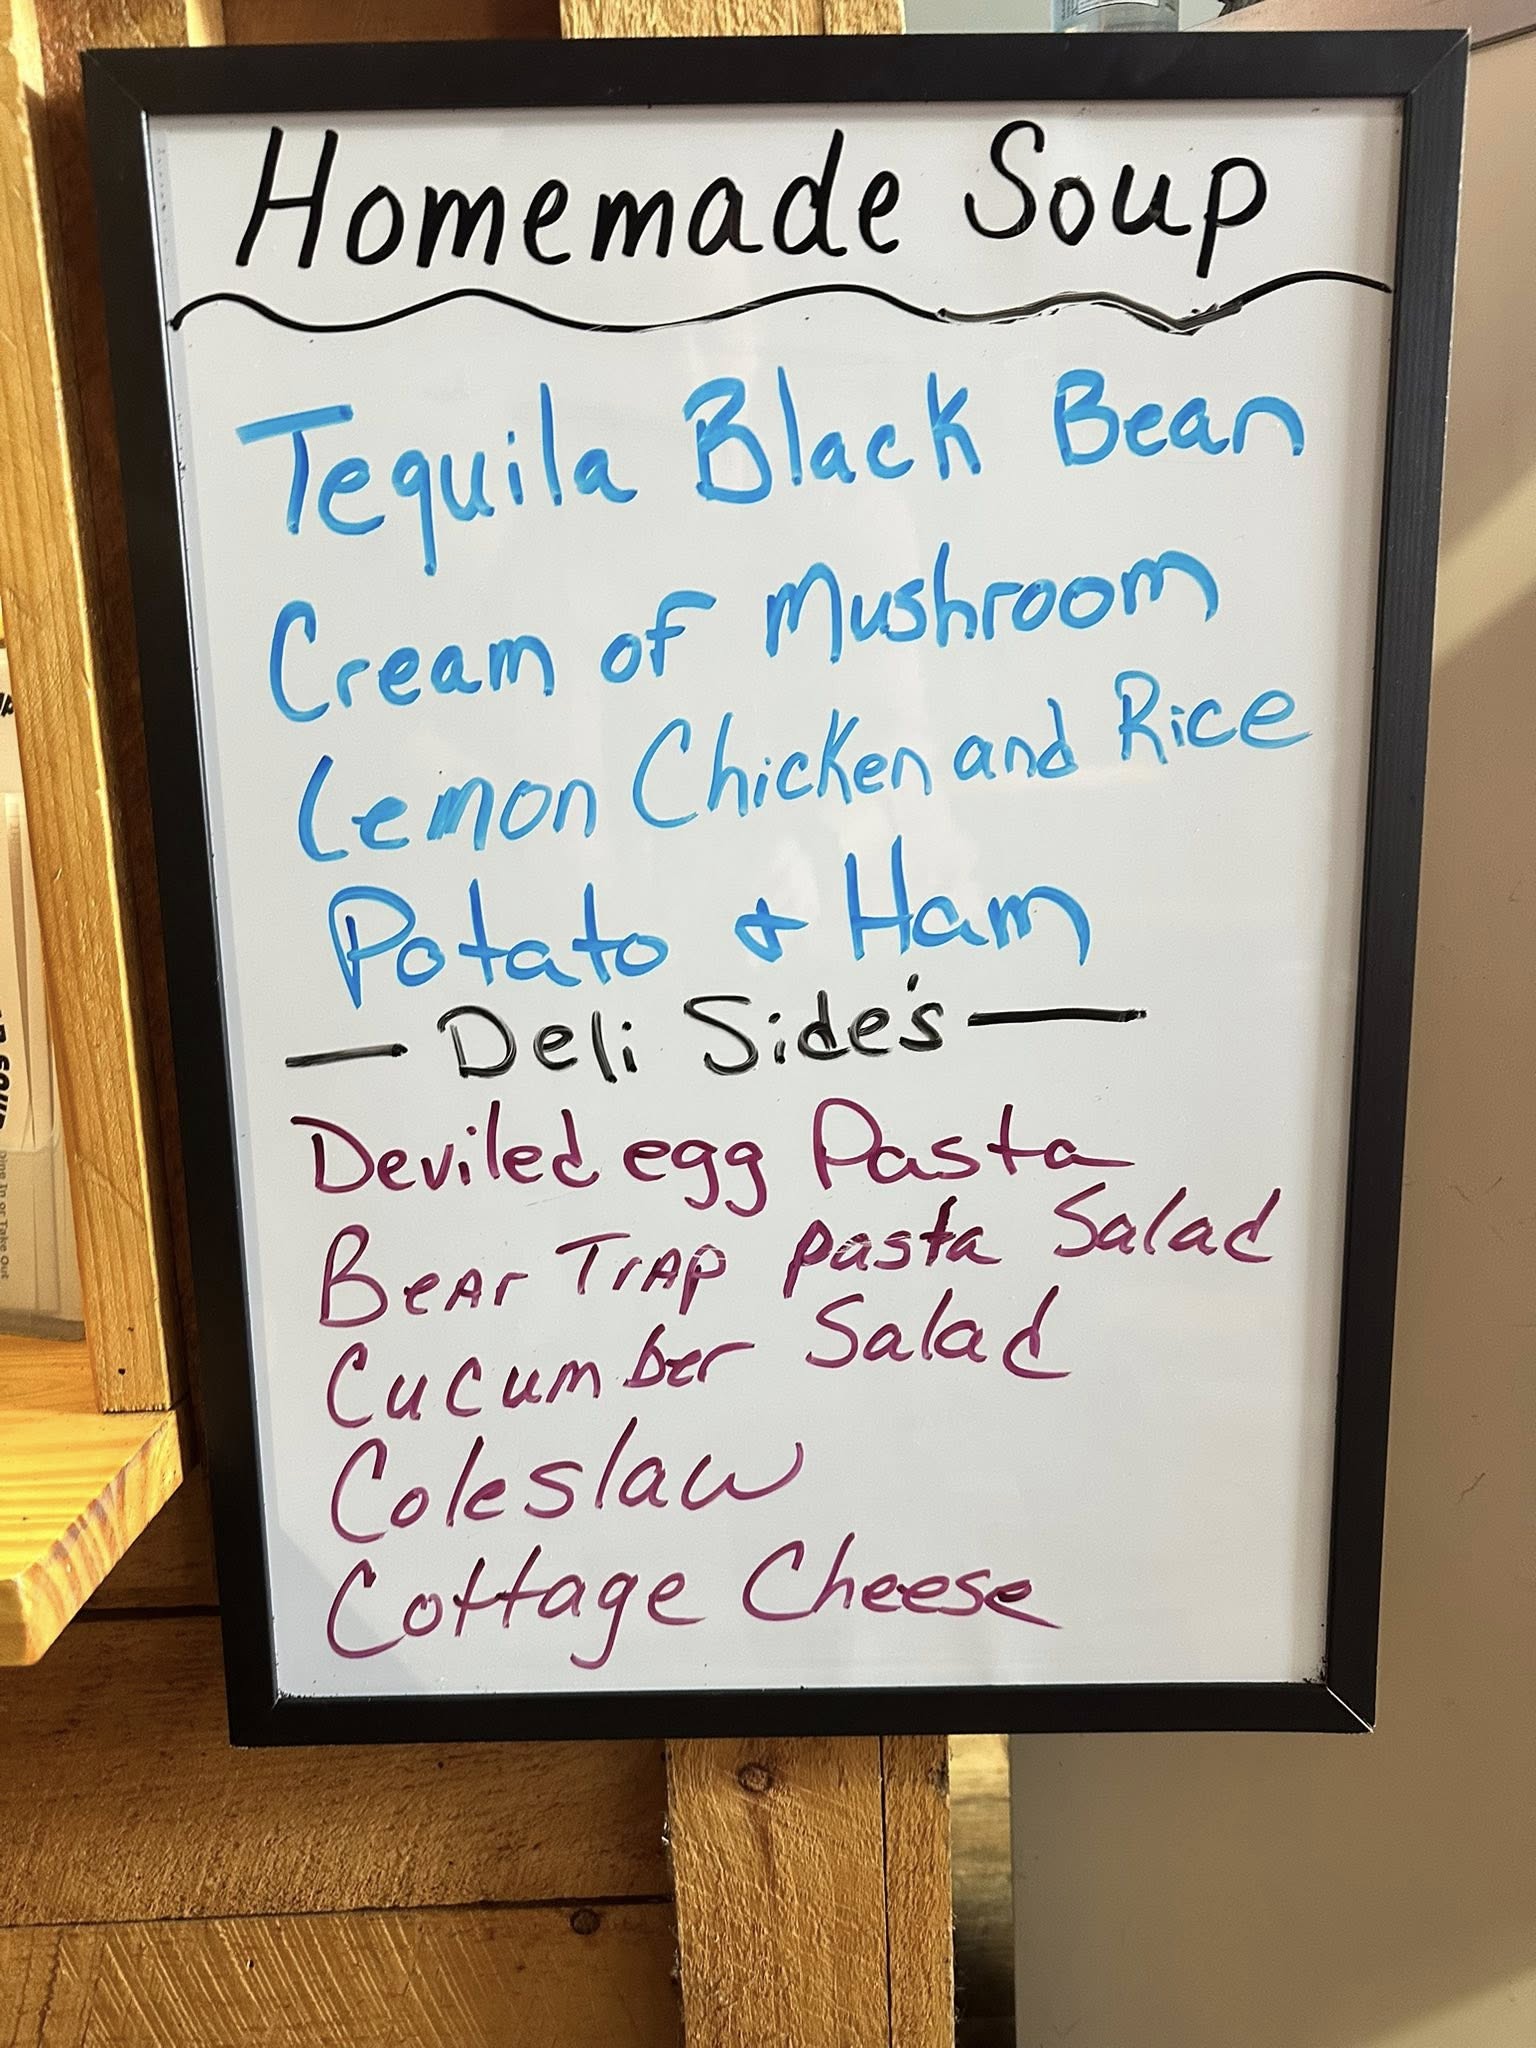 Homemade Soup
Tequila Black Bean
Cream of Mushroom
Lemon Chicken and Rice
Potato & Ham
— Deli Side's —
Deviled egg Pasta
Bear Trap pasta Salad
Cucumber Salad
Coleslaw
Cottage Cheese
Dine In or Take Out